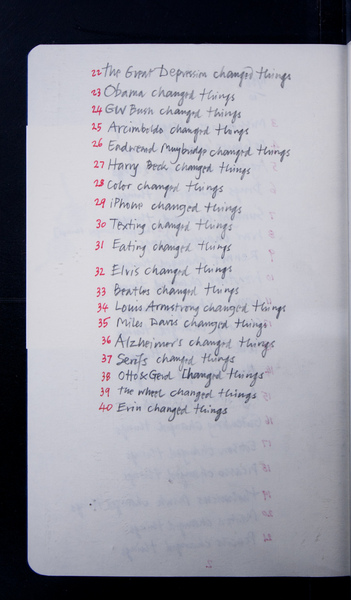 22 The Great Depression changed things
23 Obama changed things
24 GW Bush changed things
25 Arcimboldo changed things
26 Eadweard Muybridge changed things
27 Harry Beck changed things
28 Color changed things
29 iPhone changed things
30 Texting changed things
31 Eating changed things
32 Elvis changed things
33 Beatles changed things
34 Louis Armstrong changed things
35 Miles Davis changed things
36 Alzheimer's changed things
37 Serifs changed things
38 Otto & Gerd changed things
39 The wheel changed things
40 Erin changed things